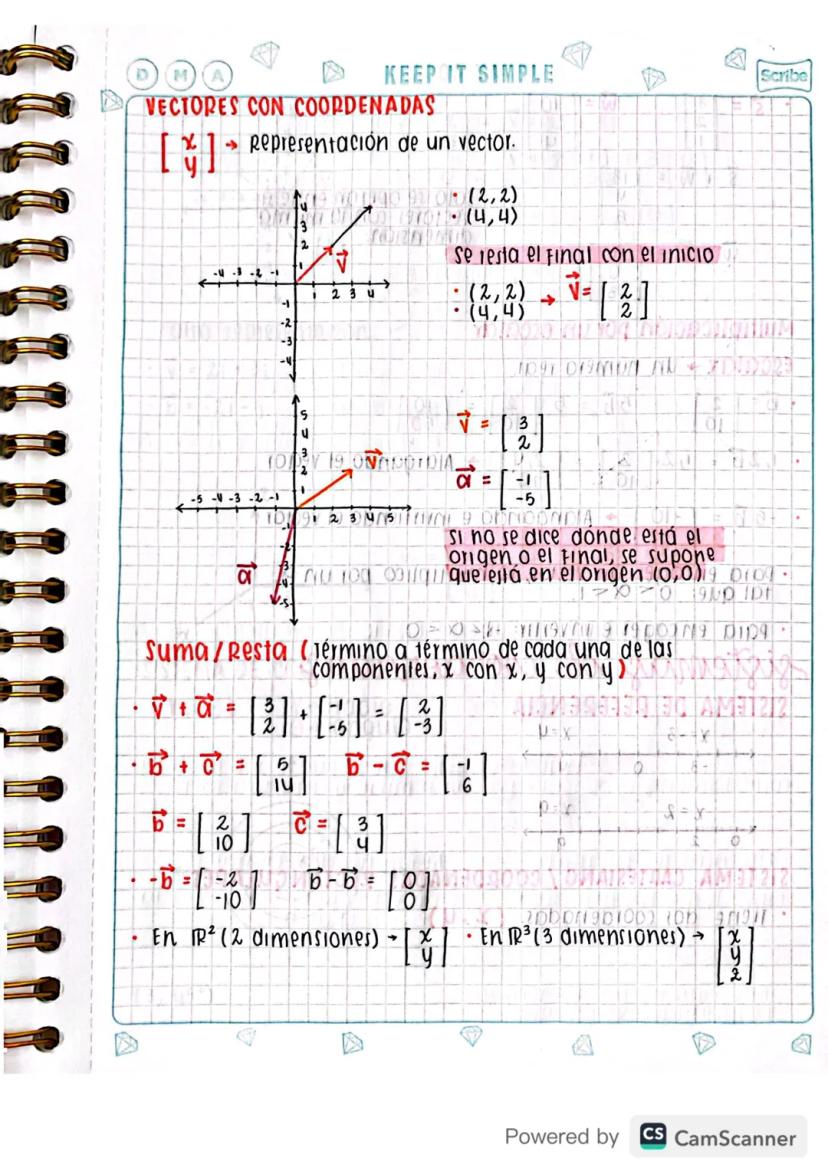 D M A
KEEP IT SIMPLE
Scribe
VECTORES CON COORDENADAS
[x y] → Representación de un vector.
• (2,2)
• (4,4)
4
3
2
1
-4 -3 -2 -1
1 2 3 4
-1
-2
-3
-4
v
Se resta el final con el inicio
• (2,2)
• (4,4) → v = [2 2]
5
4
3
2
1
-5 -4 -3 -2 -1
1 2 3 4 5
-1
-2
-3
-4
-5
v
a
v = [3 2]
a = [-1 -5]
Si no se dice donde está el
origen o el final, se supone
que está en el origen (0,0)
Suma / Resta (Término a término de cada una de las
componentes, x con x, y con y)
• v + a = [3 2] + [-1 -5] = [2 -3]
• b + c = [5 14] b - c = [-1 6]
b = [2 10] c = [3 4]
• -b = [-2 -10] b - b = [0 0]
• En ℝ² (2 dimensiones) → [x y] • En ℝ³ (3 dimensiones) → [x y z]
Powered by CS CamScanner